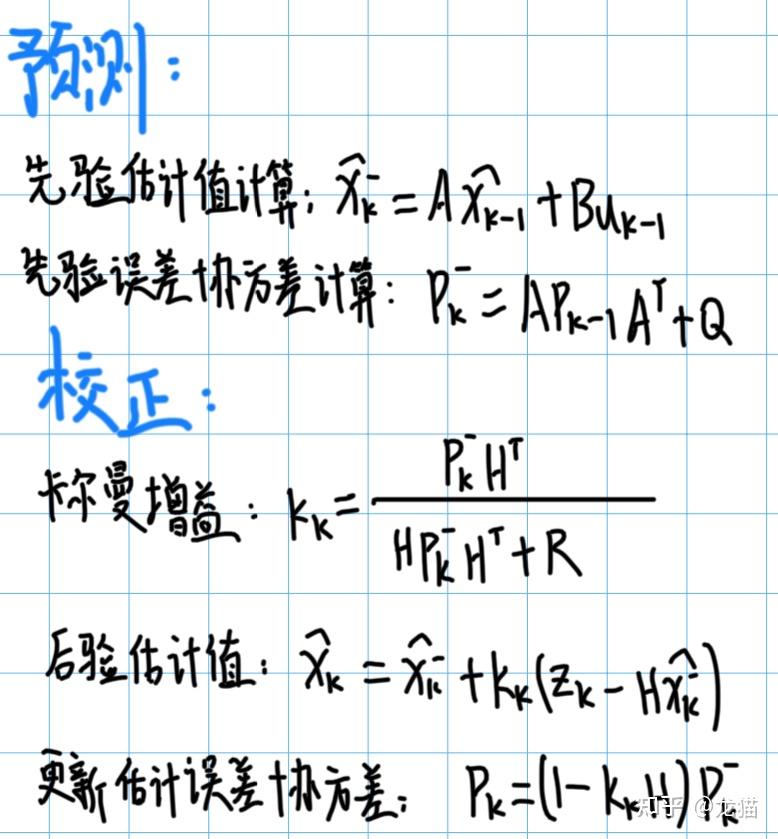 预测：
先验估计值计算：x̂ₖ⁻ = Ax̂ₖ₋₁ + Buₖ₋₁
先验误差协方差计算：Pₖ⁻ = APₖ₋₁Aᵀ + Q
校正：
卡尔曼增益：Kₖ = Pₖ⁻Hᵀ / (HPₖ⁻Hᵀ + R)
后验估计值：x̂ₖ = x̂ₖ⁻ + Kₖ(zₖ - Hx̂ₖ⁻)
更新估计误差协方差：Pₖ = (1 - KₖH)Pₖ⁻
知乎 @龙猫